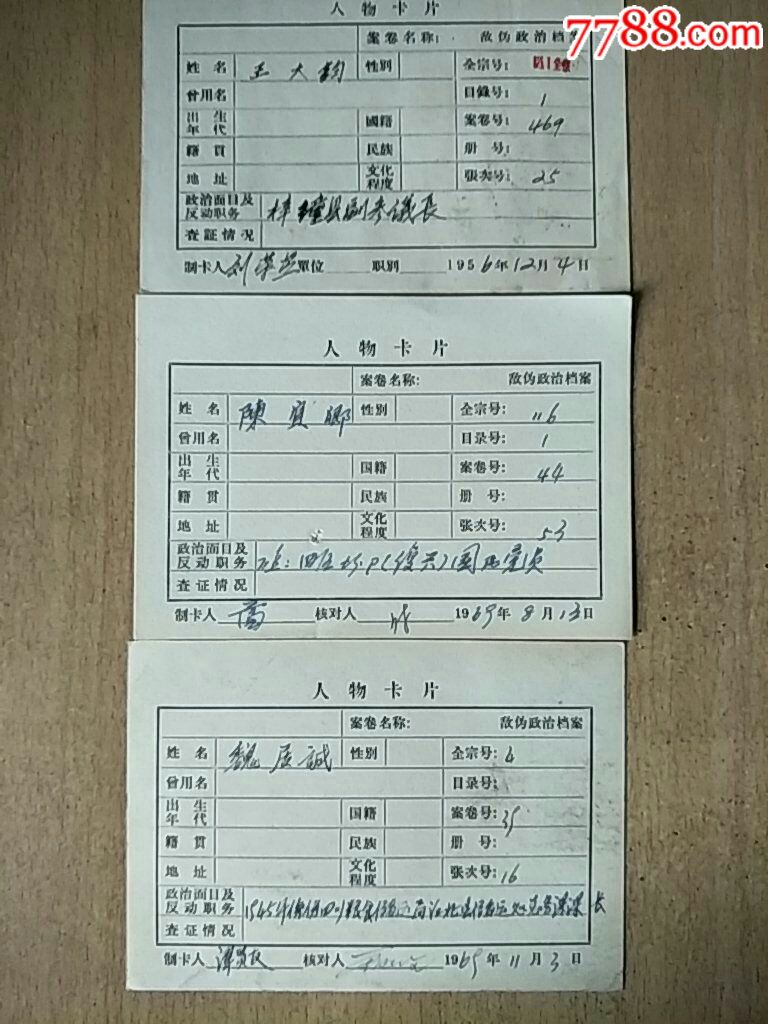 7788.com
人物卡片
案卷名称: 敌伪政治档案
姓名 王大钧 性別 全宗号:
曾用名 目錄号: 1
出生年代 國籍 案卷号: 469
籍貫 民族 册号:
地址 文化程度 張次号: 25
政治面目及反动职务 梓潼县副参議長
査証情况
制卡人 單位 职别 1956年12月4日
人物卡片
案卷名称: 敌伪政治档案
姓名 陳宜 性別 全宗号: 116
曾用名 目录号: 1
出生年代 国籍 案卷号: 44
籍贯 民族 册号:
地址 文化程度 张次号: 53
政治面目及反动职务 国民党员
查证情况
制卡人 核对人 1969年8月13日
人物卡片
案卷名称: 敌伪政治档案
姓名 魏居誠 性别 全宗号: 4
曾用名 目录号:
出生年代 国籍 案卷号: 35
籍贯 民族 册号:
地址 文化程度 张次号: 16
政治面目及反动职务 1945年 四川粮食 江北县 长
查证情况
制卡人 核对人 1969年11月3日